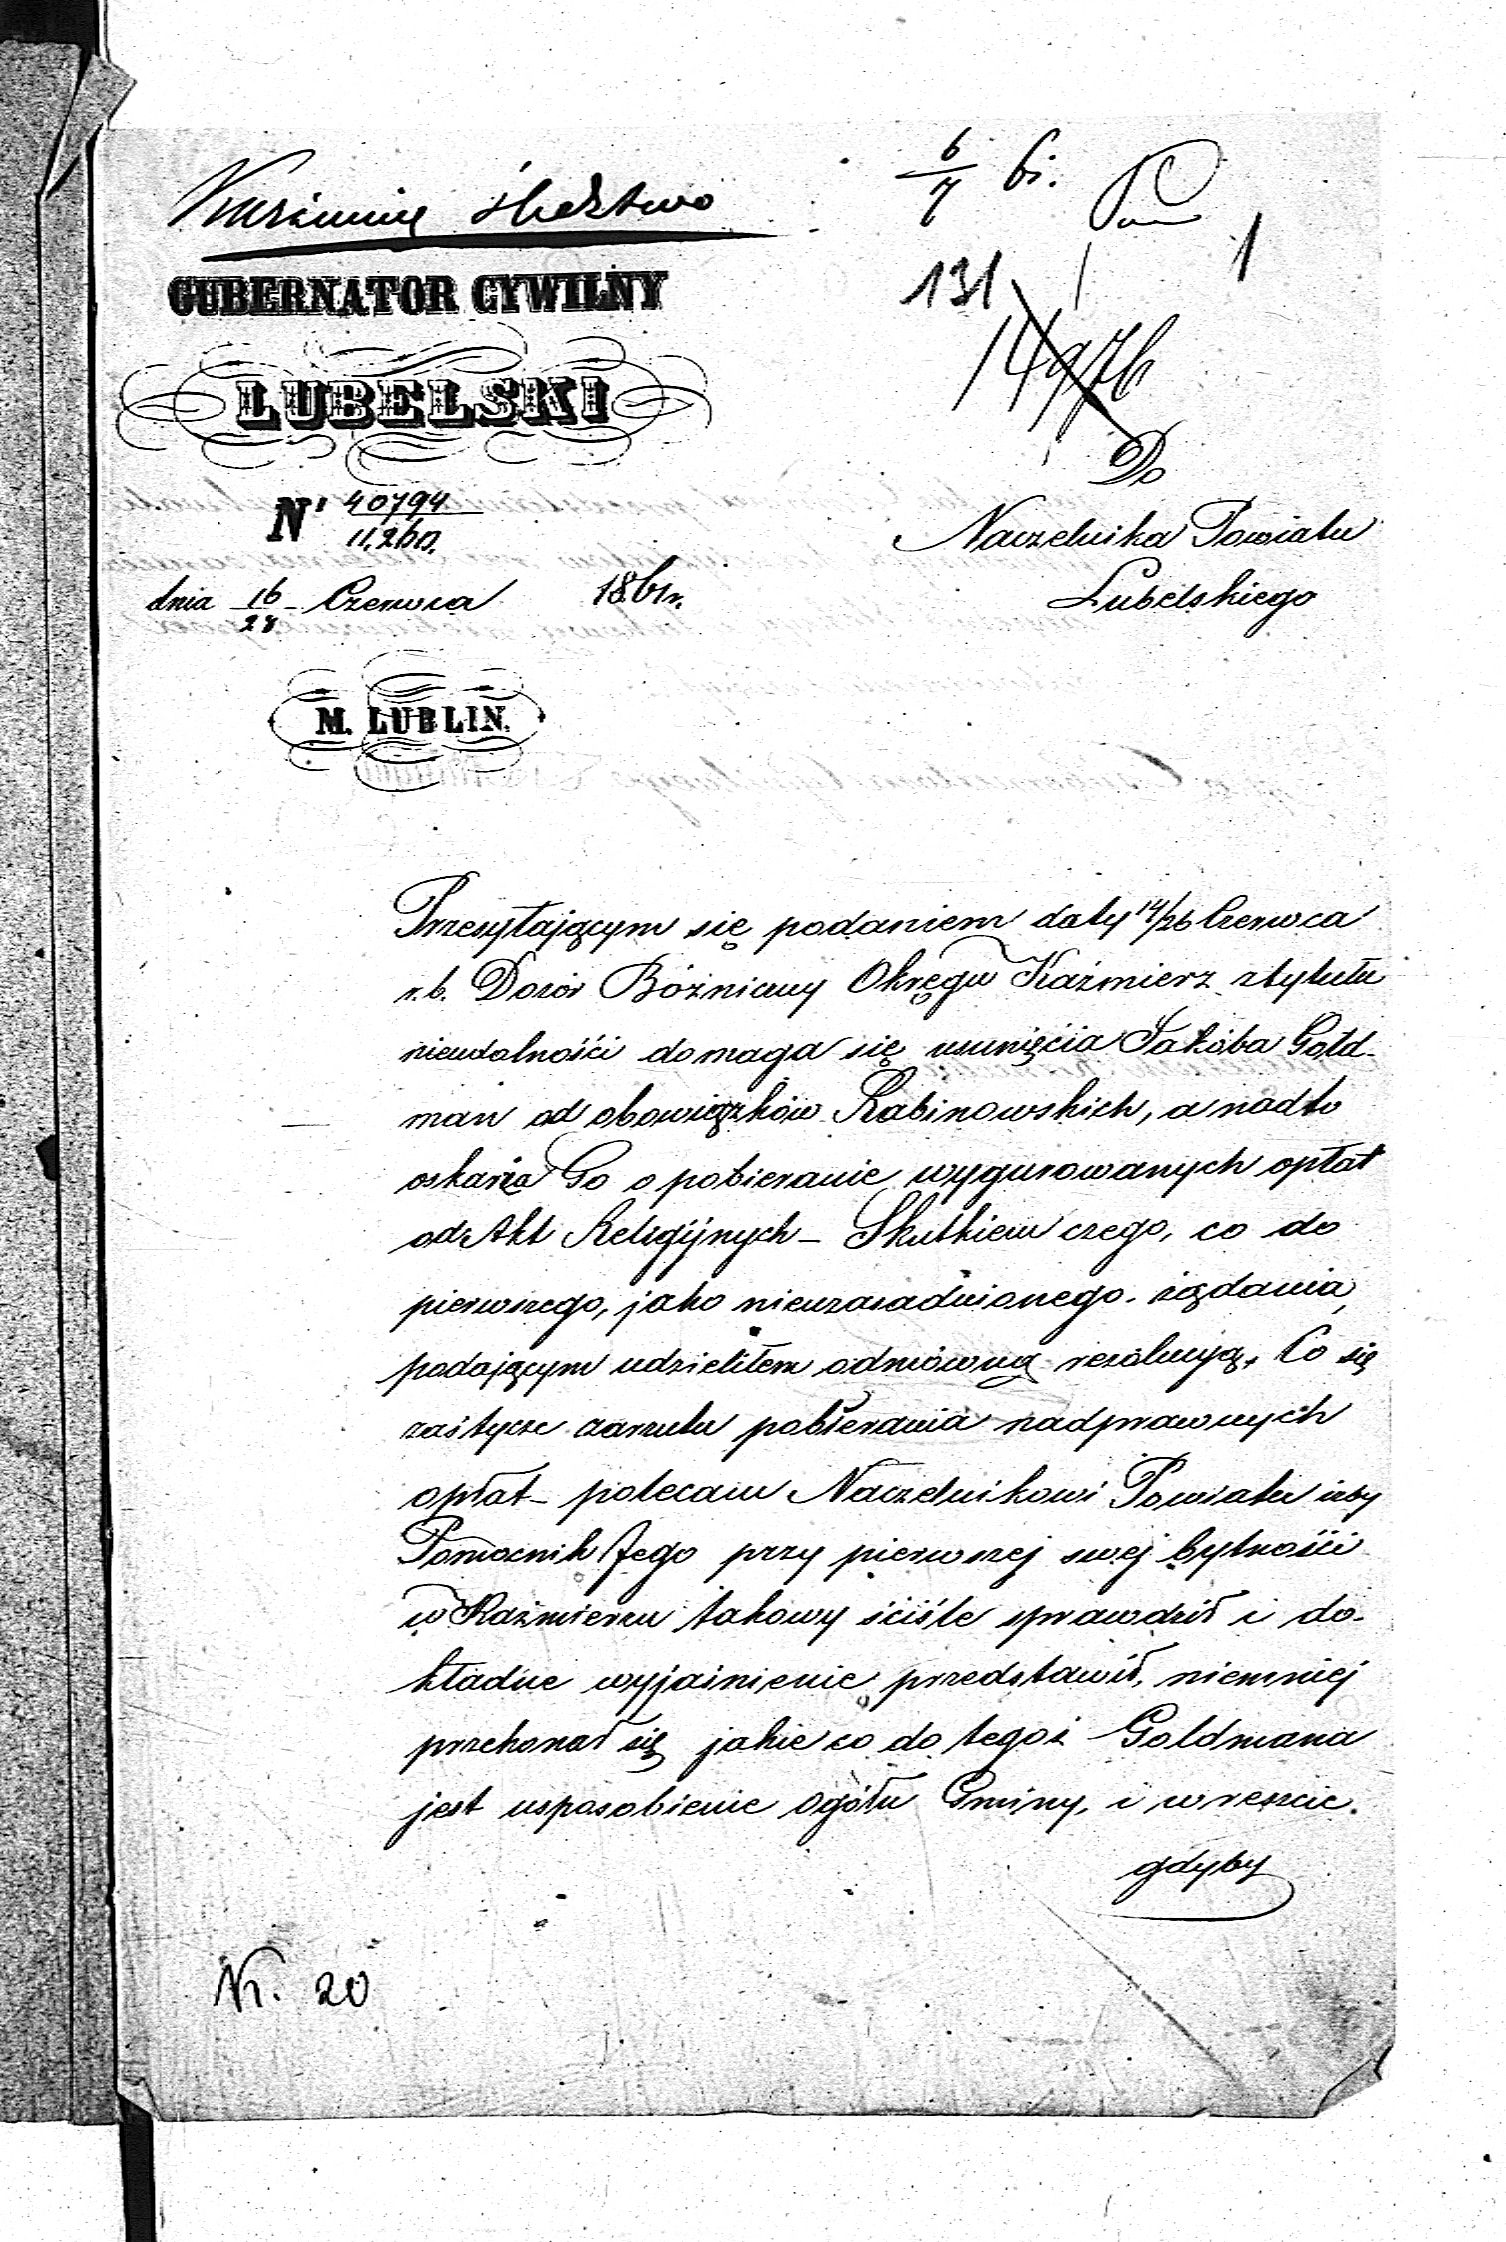 6/7 bi.
131
1
14976
GUBERNATOR CYWILNY
LUBELSKI
Nr 40794
11,260.
dnia 16/28 Czerwca 1861r.
M. LUBLIN.
Do
Naczelnika Powiatu
Lubelskiego
Przesyłającym się podaniem daty 14/26 Czerwca
r.b. Dozór Bóżniczny Okręgu Kaźmierz z tytułu
nieudolności domaga się usunięcia Jakóba Gold-
man od obowiązków Rabinowskich, a nadto
oskarża Go o pobieranie wygurowanych opłat
od Akt Religijnych – Skutkiem czego, co do
pierwszego, jako nieuzasadnionego żądania,
podającym udzieliłem odmówną rezolucyą. Co się
zaś tycze zarzutu pobierania nadprawnych
opłat – polecam Naczelnikowi Powiatu iżby
Pomocnik Jego przy pierwszej swej bytności
w Kaźmierzu takowy ściśle sprawdził i do-
kładne wyjaśnienie przedstawił, niemniej
przekonał się jakie co do tegoż Goldmana
jest usposobienie ogółu Gminy, i wreszcie
gdyby
Nr. 20